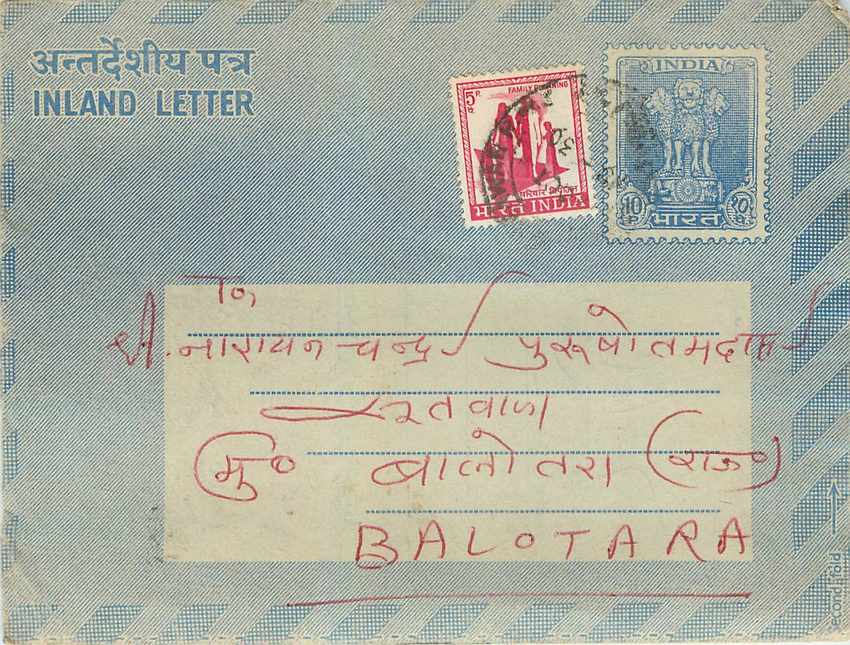 अन्तर्देशीय पत्र
INLAND LETTER
5 P.
FAMILY PLANNING
परिवार नियोजन
भारत INDIA
INDIA
10 भारत १०
To,
श्री. नारायन चन्द्र पुरूषोतमदास
मु० बालोतरा (राज०)
BALOTARA
second fold